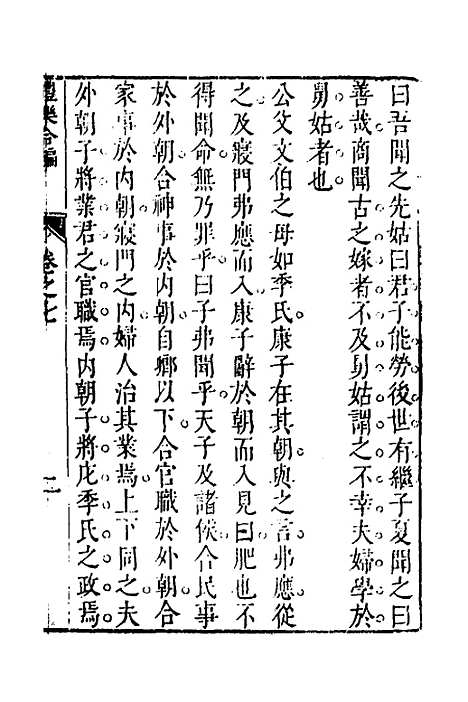 曰吾聞之先姑曰君子能勞後世有繼子夏聞之曰
善哉商聞古之嫁者不及舅姑謂之不幸夫婦學於
舅姑者也
公父文伯之母如季氏康子在其朝與之言弗應從
之及寢門弗應而入康子辭於朝而入見曰肥也不
得聞命無乃罪乎曰子弗聞乎天子及諸侯合民事
於外朝合神事於內朝自卿以下合官職於外朝合
家事於內朝寢門之內婦人治其業焉上下同之夫
外朝子將業君之官職焉內朝子將庀季氏之政焉
禮樂合編
卷之七
二